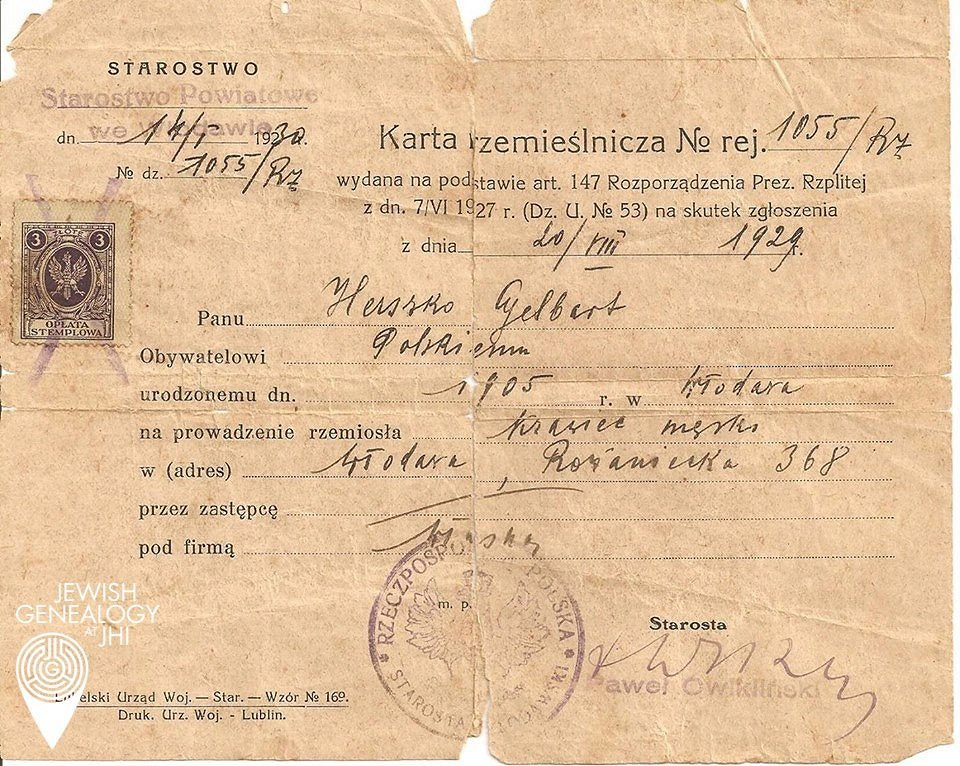 STAROSTWO
Starostwo Powiatowe
we Włodawie
dn. 14/I 1930.
№ dz. 1055/Rz
Karta rzemieślnicza № rej. 1055/Rz
wydana na podstawie art. 147 Rozporządzenia Prez. Rzplitej
z dn. 7/VI 1927 r. (Dz. U. № 53) na skutek zgłoszenia
z dnia 20/VIII 1929.
3 ZŁOTE 3
OPŁATA
STEMPLOWA
Panu Herszko Gelbart
Obywatelowi Polskiemu
urodzonemu dn. 1905 r. w Włodawa
na prowadzenie rzemiosła krawiec męski
w (adres) Włodawa Rożaniecka 368
przez zastępcę
pod firmą
RZECZPOSPOLITA POLSKA
STAROSTA WŁODAWSKI
m. p.
Starosta
Paweł Ćwikliński
JEWISH
GENEALOGY
AT JHI
Lubelski Urząd Woj. — Star. — Wzór № 169.
Druk. Urz. Woj. - Lublin.